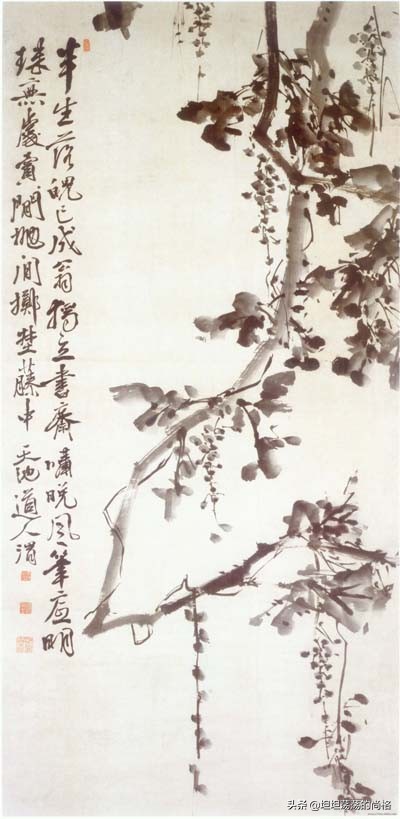 半生落魄已成翁獨立書齋嘯晚風筆底明
珠無處賣閒拋閒擲埜藤中 天池道人渭
头条 @坦坦荡荡的尚格